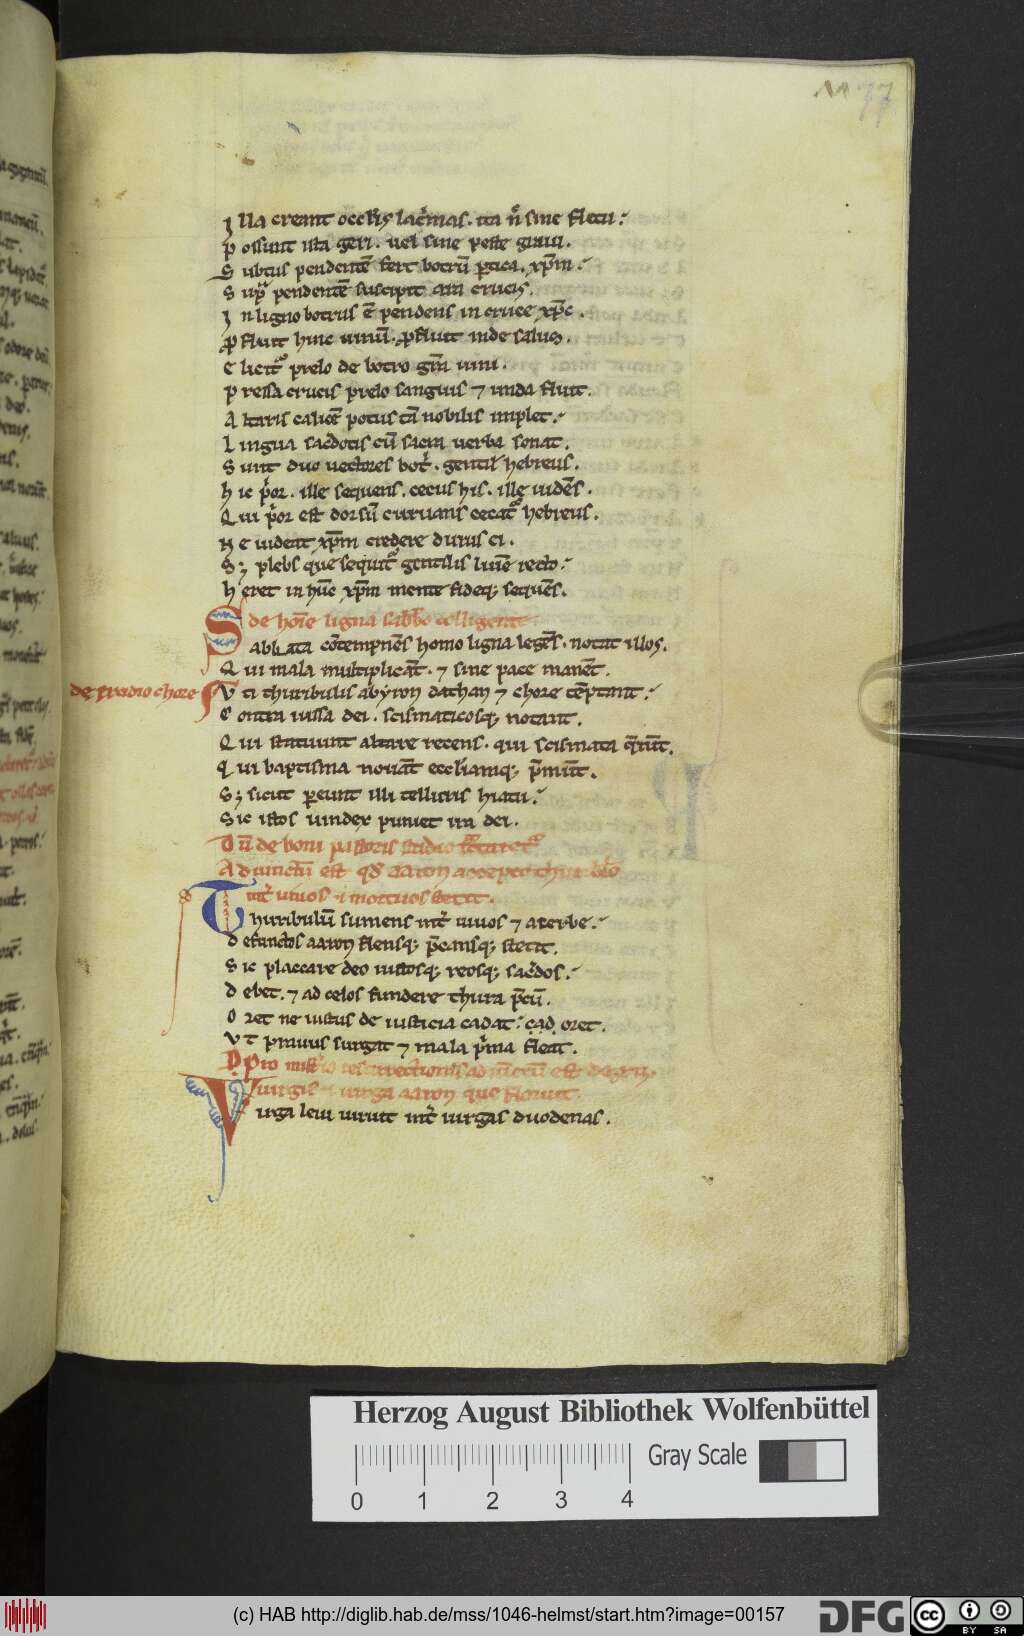 77
Illa creant occłis lac̄mas. ita n̄ sine fletu:
Possunt ista geri. uel sine peste graui.
Subtus pendentē fert botrū ꝑtica. xp̄m:
Sup̄ pendentē suscipit ara crucis.
In ligno botrus ē pendens in cruce xp̄c.
ꝓfluit hinc uinū. ꝓfluit inde salus.
Elicit᷑ prelo de botro gr̄a uini.
Pressa crucis prelo sanguis ⁊ unda fluit.
Altaris calicē potus tā nobilis implet:
Lingua sac̄dotis cū sacra uerba sonat.
Sunt duo uectores botr̄. gentił hebreus.
Hic p̄or. ille sequens. cecus his. ille uidēs.
Qui p̄or est dorsū curuans cecat᷑ hebreus.
Ne uideat xp̄m credere durus ei.
Sꝫ plebs que sequit᷑ gentilis lum̄e recto:
Heret in hūc xp̄m mente fideqꝫ sequēs.
de hōie ligna sabb̄o colligente
Sabbata cōtempnēs homo ligna legēs. notat illos.
Qui mala multiplicāt. ⁊ sine pace manēt.
de ṗsidio chore
Vt thuribulis abyron dathan ⁊ chore tēptant:
Contra iussa dei. scismaticosqꝫ notant.
Qui statuunt altare recens. qui scismata q̄rūt.
Qui baptisma nouāt ecclīamqꝫ p̄mūt.
Sꝫ sicut ꝑeunt illi telluris hiatu:
Sic istos uindex puniet ira dei.
Vn̄ de boni pastoris studio
Adiunctū est qd̄ aaron accepto thuribło
int̄ uiuos ⁊ mortuos stetit.
Thuribulū sumens int̄ uiuos ⁊ acerbe:
Defunctos aaron flensqꝫ p̄cansqꝫ stetit.
Sic placcare deo iustosqꝫ reosqꝫ sac̄dos:
Debet. ⁊ ad celos fundere thura p̄cū.
Oret ne iustus de iusticia cadat: cad oret.
Vt prauus surgat ⁊ mala p̄ma fleat.
resurrectionis adiūctū est de
uirgis ⁊ uirga aaron que floruit.
Virga leui uiruit int̄ uirgas duodenas.
Herzog August Bibliothek Wolfenbüttel
Gray Scale
0 1 2 3 4
(c) HAB http://diglib.hab.de/mss/1046-helmst/start.htm?image=00157
DFG
cc BY SA